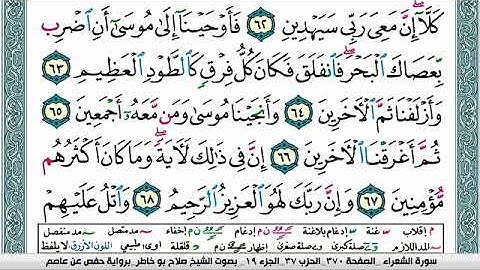 كَلَّا ۖ إِنَّ مَعِيَ رَبِّي سَيَهْدِينِ ٦٢ فَأَوْحَيْنَا إِلَىٰ مُوسَىٰ أَنِ اضْرِب
بِّعَصَاكَ الْبَحْرَ ۖ فَانفَلَقَ فَكَانَ كُلُّ فِرْقٍ كَالطَّوْدِ الْعَظِيمِ ٦٣
وَأَزْلَفْنَا ثَمَّ الْآخَرِينَ ٦٤ وَأَنجَيْنَا مُوسَىٰ وَمَن مَّعَهُ أَجْمَعِينَ ٦٥
ثُمَّ أَغْرَقْنَا الْآخَرِينَ ٦٦ إِنَّ فِي ذَٰلِكَ لَآيَةً ۖ وَمَا كَانَ أَكْثَرُهُم
مُّؤْمِنِينَ ٦٧ وَإِنَّ رَبَّكَ لَهُوَ الْعَزِيزُ الرَّحِيمُ ٦٨ وَاتْلُ عَلَيْهِمْ
م إقلاب غنة إدغام بلاغنة ن م إدغام إخفاء مد متصل مد منفصل
المد اللازم صلة كبرى صلة صغرى إظهار ن م قلقلة طبيعي اللون الأزرق لا يلفظ
سورة الشعراء _ الصفحة ٣٧٠_ الحزب ٣٧_ الجزء ١٩ _ بصوت الشيخ صلاح بو خاطر_ برواية حفص عن عاصم